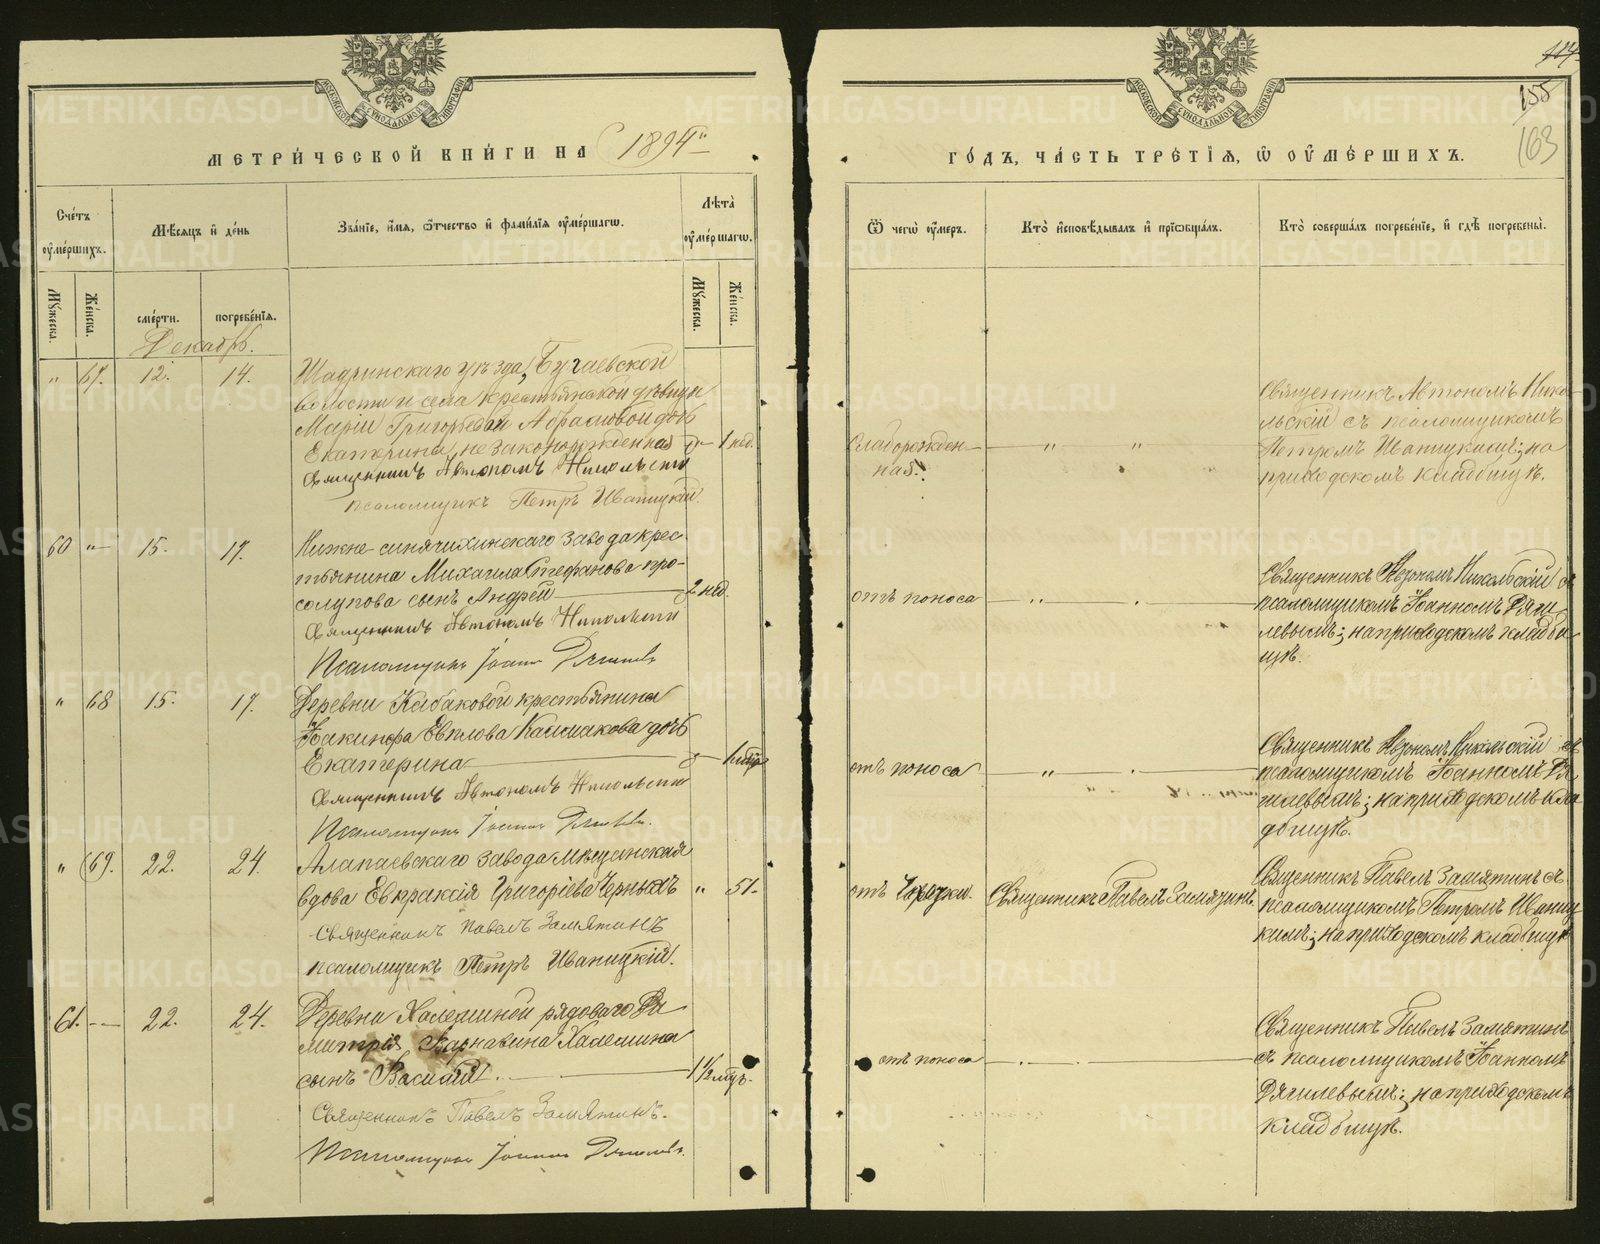 МЕТРИ́ЧЕСКОЙ КНИ́ГИ НА 1894й
ГО́ДЪ, ЧА́СТЬ ТРЕ́ТІЯ, Ѽ ОУ҆МЕ́РШИХЪ.
155
163
МОСКОВСКОЙ СѴНОДАЛЬНОЙ ТИПОГРАФІИ
МОСКОВСКОЙ СѴНОДАЛЬНОЙ ТИПОГРАФІИ
Сче́тъ оу҆ме́ршихъ.
Мѣ́сяцъ и҆ де́нь
Зва́нїе, и҆́мя, ѻ҆́тчество и҆ фами́лїя оу҆ме́ршагѡ.
Лѣ́та оу҆ме́ршагѡ.
Ѿ чегѡ̀ оу҆́меръ.
Кто̀ и҆сповѣ́дывалъ и҆ прїѡбща́лъ.
Кто̀ соверша́лъ погребе́нїе, и҆ гдѣ̀ погребены̀.
Му́жеска.
Же́нска.
сме́рти.
погребе́нїя.
Му́жеска.
Же́нска.
Декабрь.
" 67. 12. 14.
Шадринскаго уѣзда, Бугаевской
волости и села крестьянской дѣвицы
Маріи Григорьевой Абрамовой дочь
Екатерина, незаконорожденная — 1 нед.
Священникъ Автономъ Никольскій
псаломщикъ Петръ Иваницкій.
Слаборожден-
ная.
" "
Священникъ Автономъ Нико-
льскій съ псаломщикомъ
Петромъ Иваницкимъ; на
приходскомъ кладбищѣ.
60 " 15. 17.
Нижне-синячихинскаго завода крес-
тьянина Михаила Стефанова про-
солупова сынъ Андрей — 2 нед.
Священникъ Автономъ Никольскій
Псаломщикъ Іоаннъ Дягилевъ
отъ поноса — " — . —
Священникъ Автономъ Никольскій съ
псаломщикомъ Іоанномъ Дяги-
левымъ; на приходскомъ кладби-
щѣ.
" 68 15. 17.
Деревни Кабаковой крестьянина
Іоакинфа Евплова дочь
Екатерина — 1 мѣс.
Священникъ Автономъ Никольскій
Псаломщикъ Іоаннъ Дягилевъ.
отъ поноса — " — . —
Священникъ Автономъ Никольскій съ
псаломщикомъ Іоанномъ Дя-
гилевымъ; на приходскомъ кла-
дбищѣ.
" 69. 22. 24.
Алапаевскаго завода мѣщанская
вдова Евпраксія Григоріева Черныхъ " 51.
Священникъ Павелъ Замятинъ
псаломщикъ Петръ Иваницкій.
отъ
Священникъ Павелъ Замятинъ.
Священникъ Павелъ Замятинъ съ
псаломщикомъ Петромъ Иваниц-
кимъ; на приходскомъ кладбищѣ
61. — 22. 24.
Деревни Халеминой рядоваго Ди-
митрія Варнавина Халемина
сынъ Василій. — 1 1/2 мѣс.
Священникъ Павелъ Замятинъ.
Псаломщикъ Іоаннъ Дягилевъ.
отъ поноса — . —
Священникъ Павелъ Замятинъ
съ псаломщикомъ Іоанномъ
Дягилевымъ; на приходскомъ
кладбищѣ.
METRIKI.GASO-URAL.RU